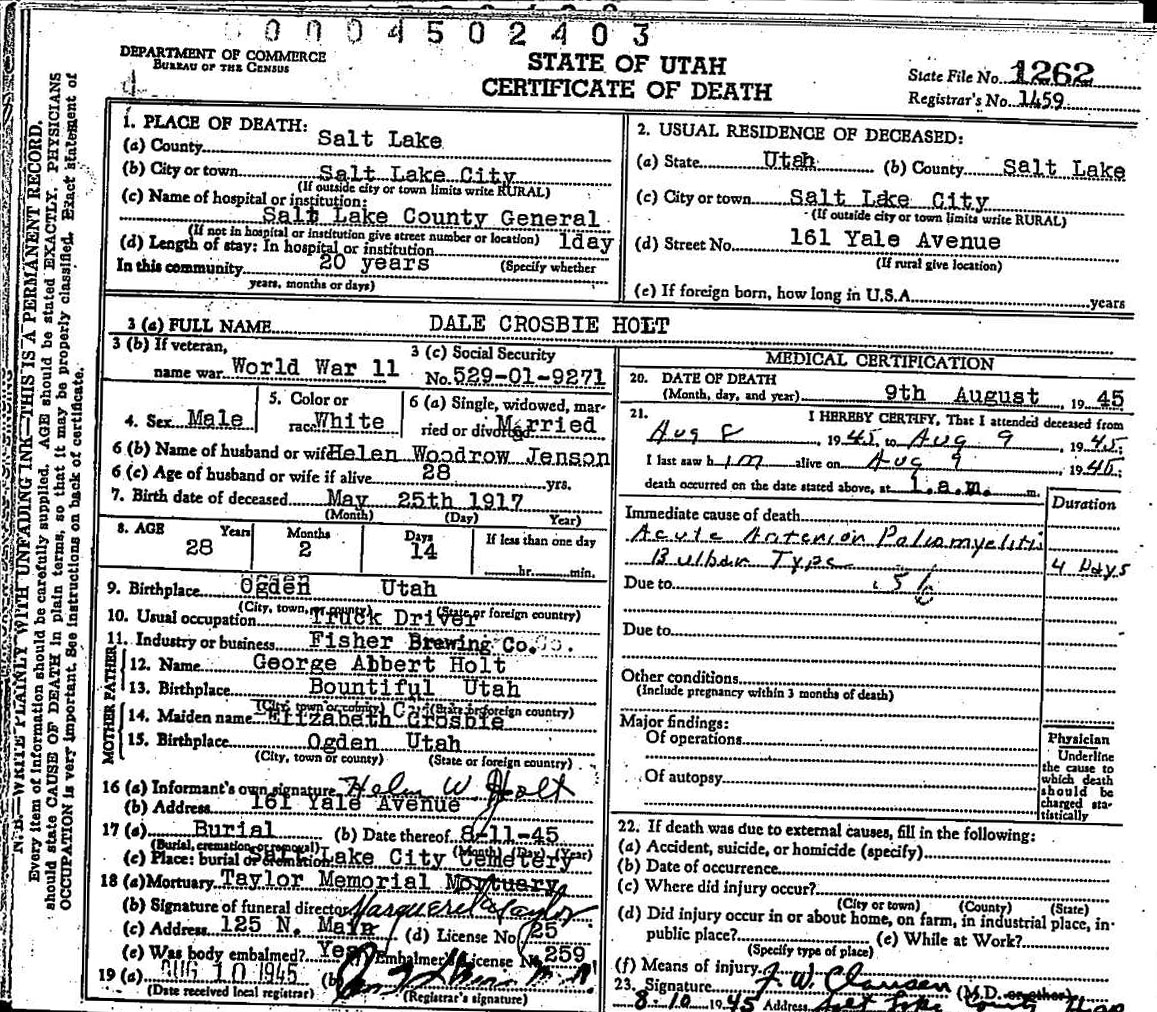 0004502403
DEPARTMENT OF COMMERCE
BUREAU OF THE CENSUS
STATE OF UTAH
CERTIFICATE OF DEATH
State File No. 1262
Registrar's No. 1459
N.B.—WRITE PLAINLY WITH UNFADING INK—THIS IS A PERMANENT RECORD.
Every item of information should be carefully supplied. AGE should be stated EXACTLY. PHYSICIANS
should state CAUSE OF DEATH in plain terms, so that it may be properly classified. Exact statement of
OCCUPATION is very important. See instructions on back of certificate.
1. PLACE OF DEATH:
(a) County Salt Lake
(b) City or town Salt Lake City
(If outside city or town limits write RURAL)
(c) Name of hospital or institution:
Salt Lake County General
(If not in hospital or institution give street number or location)
(d) Length of stay: In hospital or institution 1day
In this community 20 years (Specify whether
years, months or days)
2. USUAL RESIDENCE OF DECEASED:
(a) State Utah (b) County Salt Lake
(c) City or town Salt Lake City
(If outside city or town limits write RURAL)
(d) Street No. 161 Yale Avenue
(If rural give location)
(e) If foreign born, how long in U.S.A. years
3 (a) FULL NAME DALE CROSBIE HOLT
3 (b) If veteran,
name war World War 11
3 (c) Social Security
No. 529-01-9271
4. Sex Male
5. Color or
race White
6 (a) Single, widowed, mar-
ried or divorced Married
6 (b) Name of husband or wife Helen Woodrow Jenson
6 (c) Age of husband or wife if alive 28 yrs.
7. Birth date of deceased May 25th 1917
(Month) (Day) Year)
8. AGE Years Months Days If less than one day
28 2 14 hr. min.
9. Birthplace Ogden Utah
(City, town, or county) (State or foreign country)
10. Usual occupation Truck Driver
11. Industry or business Fisher Brewing Co.
FATHER
12. Name George Abbert Holt
13. Birthplace Bountiful Utah
(City, town or county) (State or foreign country)
MOTHER
14. Maiden name Elizabeth Crosbie
15. Birthplace Ogden Utah
(City, town or county) (State or foreign country)
16 (a) Informant's own signature Helen W. Holt
(b) Address 161 Yale Avenue
17 (a) Burial (b) Date thereof 8-11-45
(Burial, cremation or removal) (Month) (Day) (Year)
(c) Place: burial or cremation Salt Lake City Cemetery
18 (a) Mortuary Taylor Memorial Mortuary
(b) Signature of funeral director Taylor
(c) Address 125 N. Main (d) License No. 25
(e) Was body embalmed? Yes Embalmer's License No. 259
19 (a) AUG 10 1945 (b)
(Date received local registrar) (Registrar's signature)
MEDICAL CERTIFICATION
20. DATE OF DEATH
(Month, day, and year) 9th August, 1945
21. I HEREBY CERTIFY, That I attended deceased from
Aug 8, 1945, to Aug 9, 1945;
I last saw him alive on Aug 9, 1945;
death occurred on the date stated above, at 1.a.m. m.
Duration
Immediate cause of death
Acute Anterior Poliomyelitis
Bulbar Type 4 Days
Due to
Due to
Other conditions
(Include pregnancy within 3 months of death)
Major findings:
Of operations
Of autopsy
Physician
Underline
the cause to
which death
should be
charged sta-
tistically
22. If death was due to external causes, fill in the following:
(a) Accident, suicide, or homicide (specify)
(b) Date of occurrence
(c) Where did injury occur?
(City or town) (County) (State)
(d) Did injury occur in or about home, on farm, in industrial place, in
public place? (e) While at Work?
(Specify type of place)
(f) Means of injury
23. Signature F. W. Clausen (M.D. or other)
8-10 1945 Address Salt Lake County Hosp